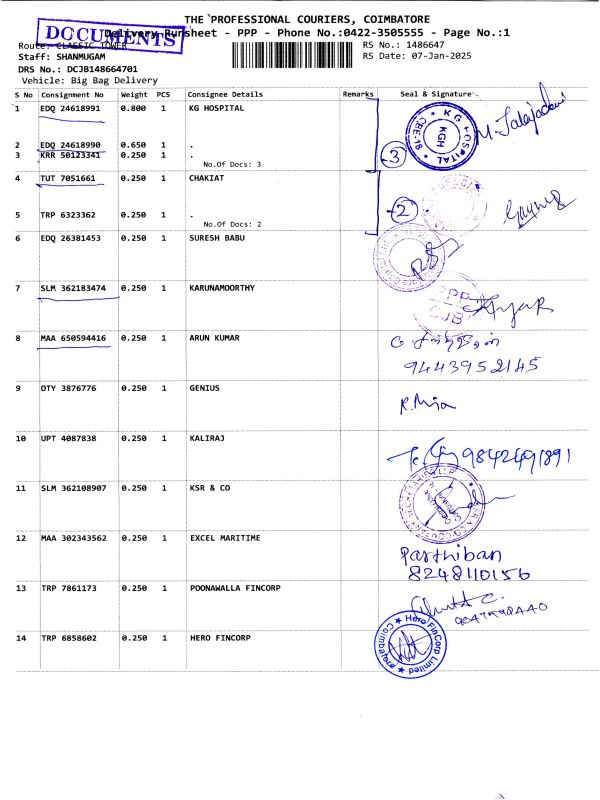 THE PROFESSIONAL COURIERS, COIMBATORE
DOCUMENTS
Delivery Runsheet - PPP - Phone No.:0422-3505555 - Page No.:1
Route: CLASSIC TOWER
RS No.: 1486647
Staff: SHANMUGAM
RS Date: 07-Jan-2025
DRS No.: DCJB148664701
Vehicle: Big Bag Delivery
S No Consignment No Weight PCS Consignee Details Remarks Seal & Signature
1 EDQ 24618991 0.800 1 KG HOSPITAL
KG HOSPITAL KGH CBE-18
2 EDQ 24618990 0.650 1 .
3 KRR 50123341 0.250 1 .
No.Of Docs: 3
3
4 TUT 7051661 0.250 1 CHAKIAT
5 TRP 6323362 0.250 1 .
No.Of Docs: 2
2
6 EDQ 26381453 0.250 1 SURESH BABU
7 SLM 362183474 0.250 1 KARUNAMOORTHY
PPP
CJB
8 MAA 650594416 0.250 1 ARUN KUMAR
9443952145
9 OTY 3876776 0.250 1 GENIUS
10 UPT 4087838 0.250 1 KALIRAJ
9842491891
11 SLM 362108907 0.250 1 KSR & CO
12 MAA 302343562 0.250 1 EXCEL MARITIME
Parthiban
8248110156
13 TRP 7861173 0.250 1 POONAWALLA FINCORP
14 TRP 6858602 0.250 1 HERO FINCORP
Hero FinCorp Limited Coimbatore